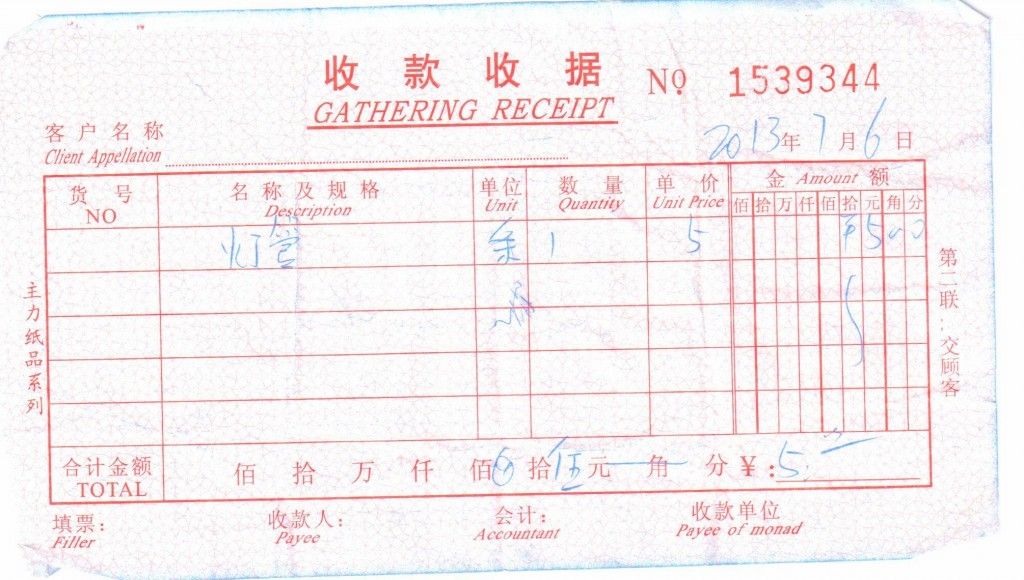 收款收据 № 1539344
GATHERING RECEIPT
客户名称
Client Appellation
2013年7月6日
货号 名称及规格 单位 数量 单价 金 Amount 额
NO Description Unit Quantity Unit Price 佰拾万仟佰拾元角分
灯管 1 5 ¥500
合计金额 佰 拾 万 仟 佰 拾 伍元 角 分 ¥:5.
TOTAL
填票: 收款人: 会计: 收款单位
Filler Payee Accountant Payee of monad
主力纸品系列
第二联:交顾客